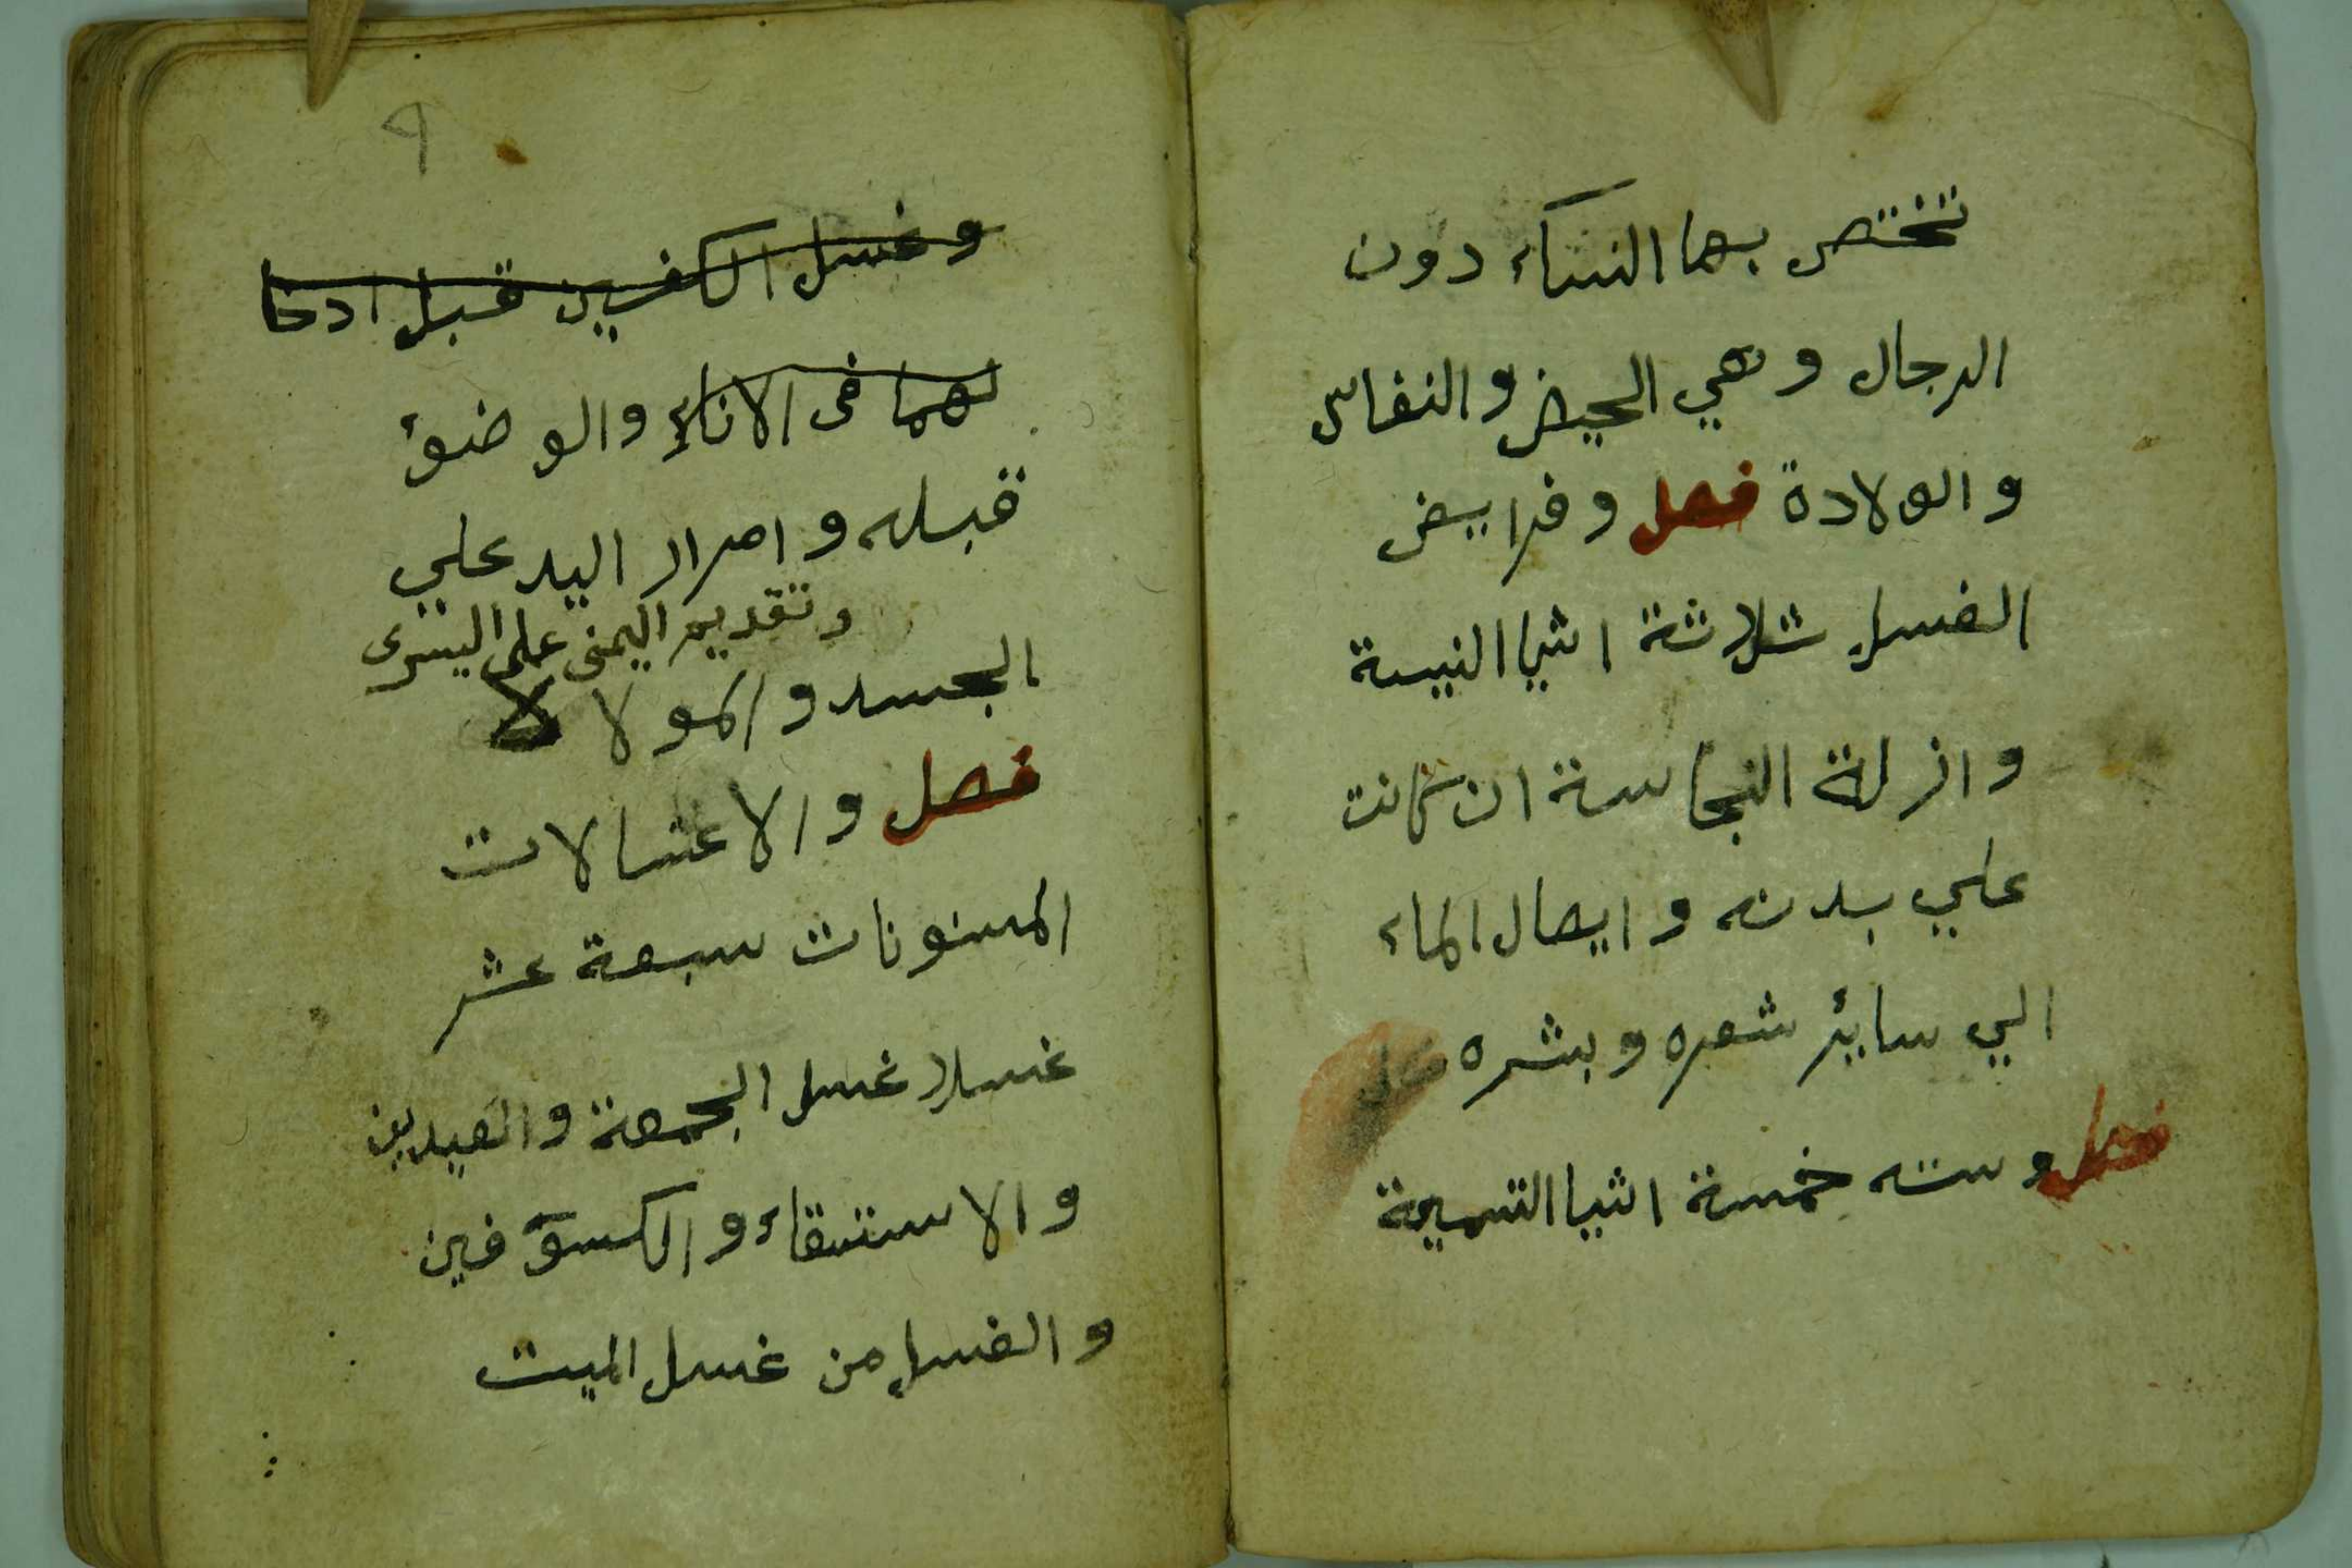 تختص بها النساء دون
الرجال وهي الحيض والنفاس
والولادة فصل وفرايض
الغسل ثلاثة اشيا النيسة
وازلة النجاسة ان كانت
علي بدنه وايصال الماء
الي سايئر شعره وبشره
فصل وسنته خمسة اشيا التسمية
٩
وغسل الكفيين قبل ادخا
لهما فى الاناء والوضوء
قبله وامرار اليد علي
وتقديم اليمنى على اليسرى
الجسد والمولا لا
فصل والاغسالات
المسنونات سبعة عشر
غسلا غسل الجمعة والعيدين
والاستسقاء والكسوفين
والغسل من غسل الميت